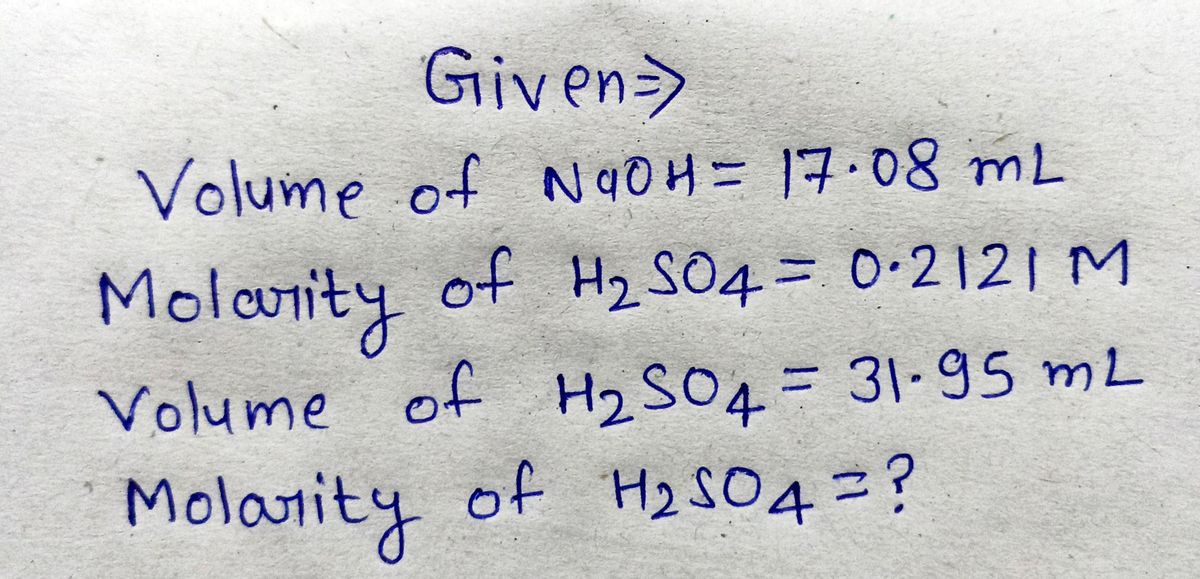 Given⇒
Volume of NaOH = 17.08 mL
Molarity of H₂SO₄ = 0.2121 M
Volume of H₂SO₄ = 31.95 mL
Molarity of H₂SO₄ = ?